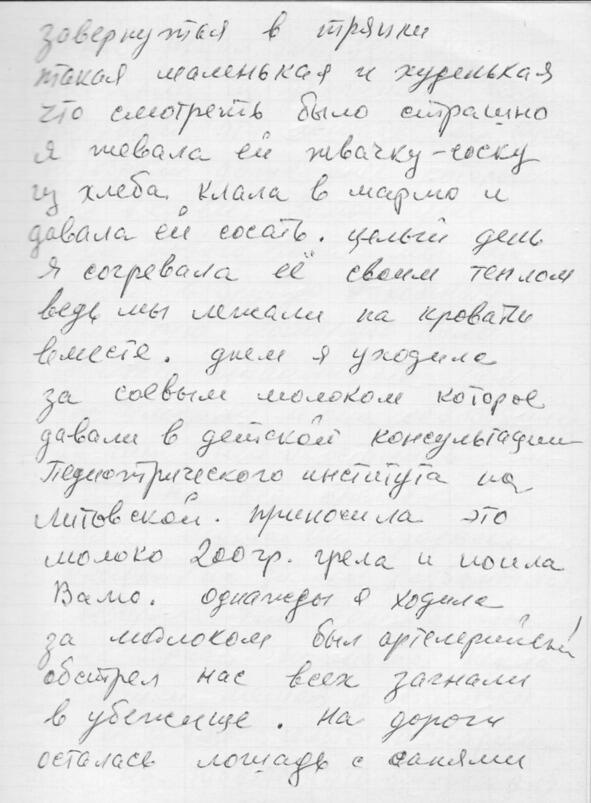 завернутая в тряпки
такая маленькая и худенькая
что смотреть было страшно
я жевала ей жвачку-соску
из хлеба клала в марлю и
давала ей сосать. целый день
я согревала её своим теплом
ведь мы лежали на кровати
вместе. днем я уходила
за соевым молоком которое
давали в детской консультации
Педиатрического института на
Литовской. приносила это
молоко 200гр. грела и поила
Валю. однажды я ходила
за молоком был артелерийский!
обстрел нас всех загнали
в убежище. на дороги
осталась лошадь с санями